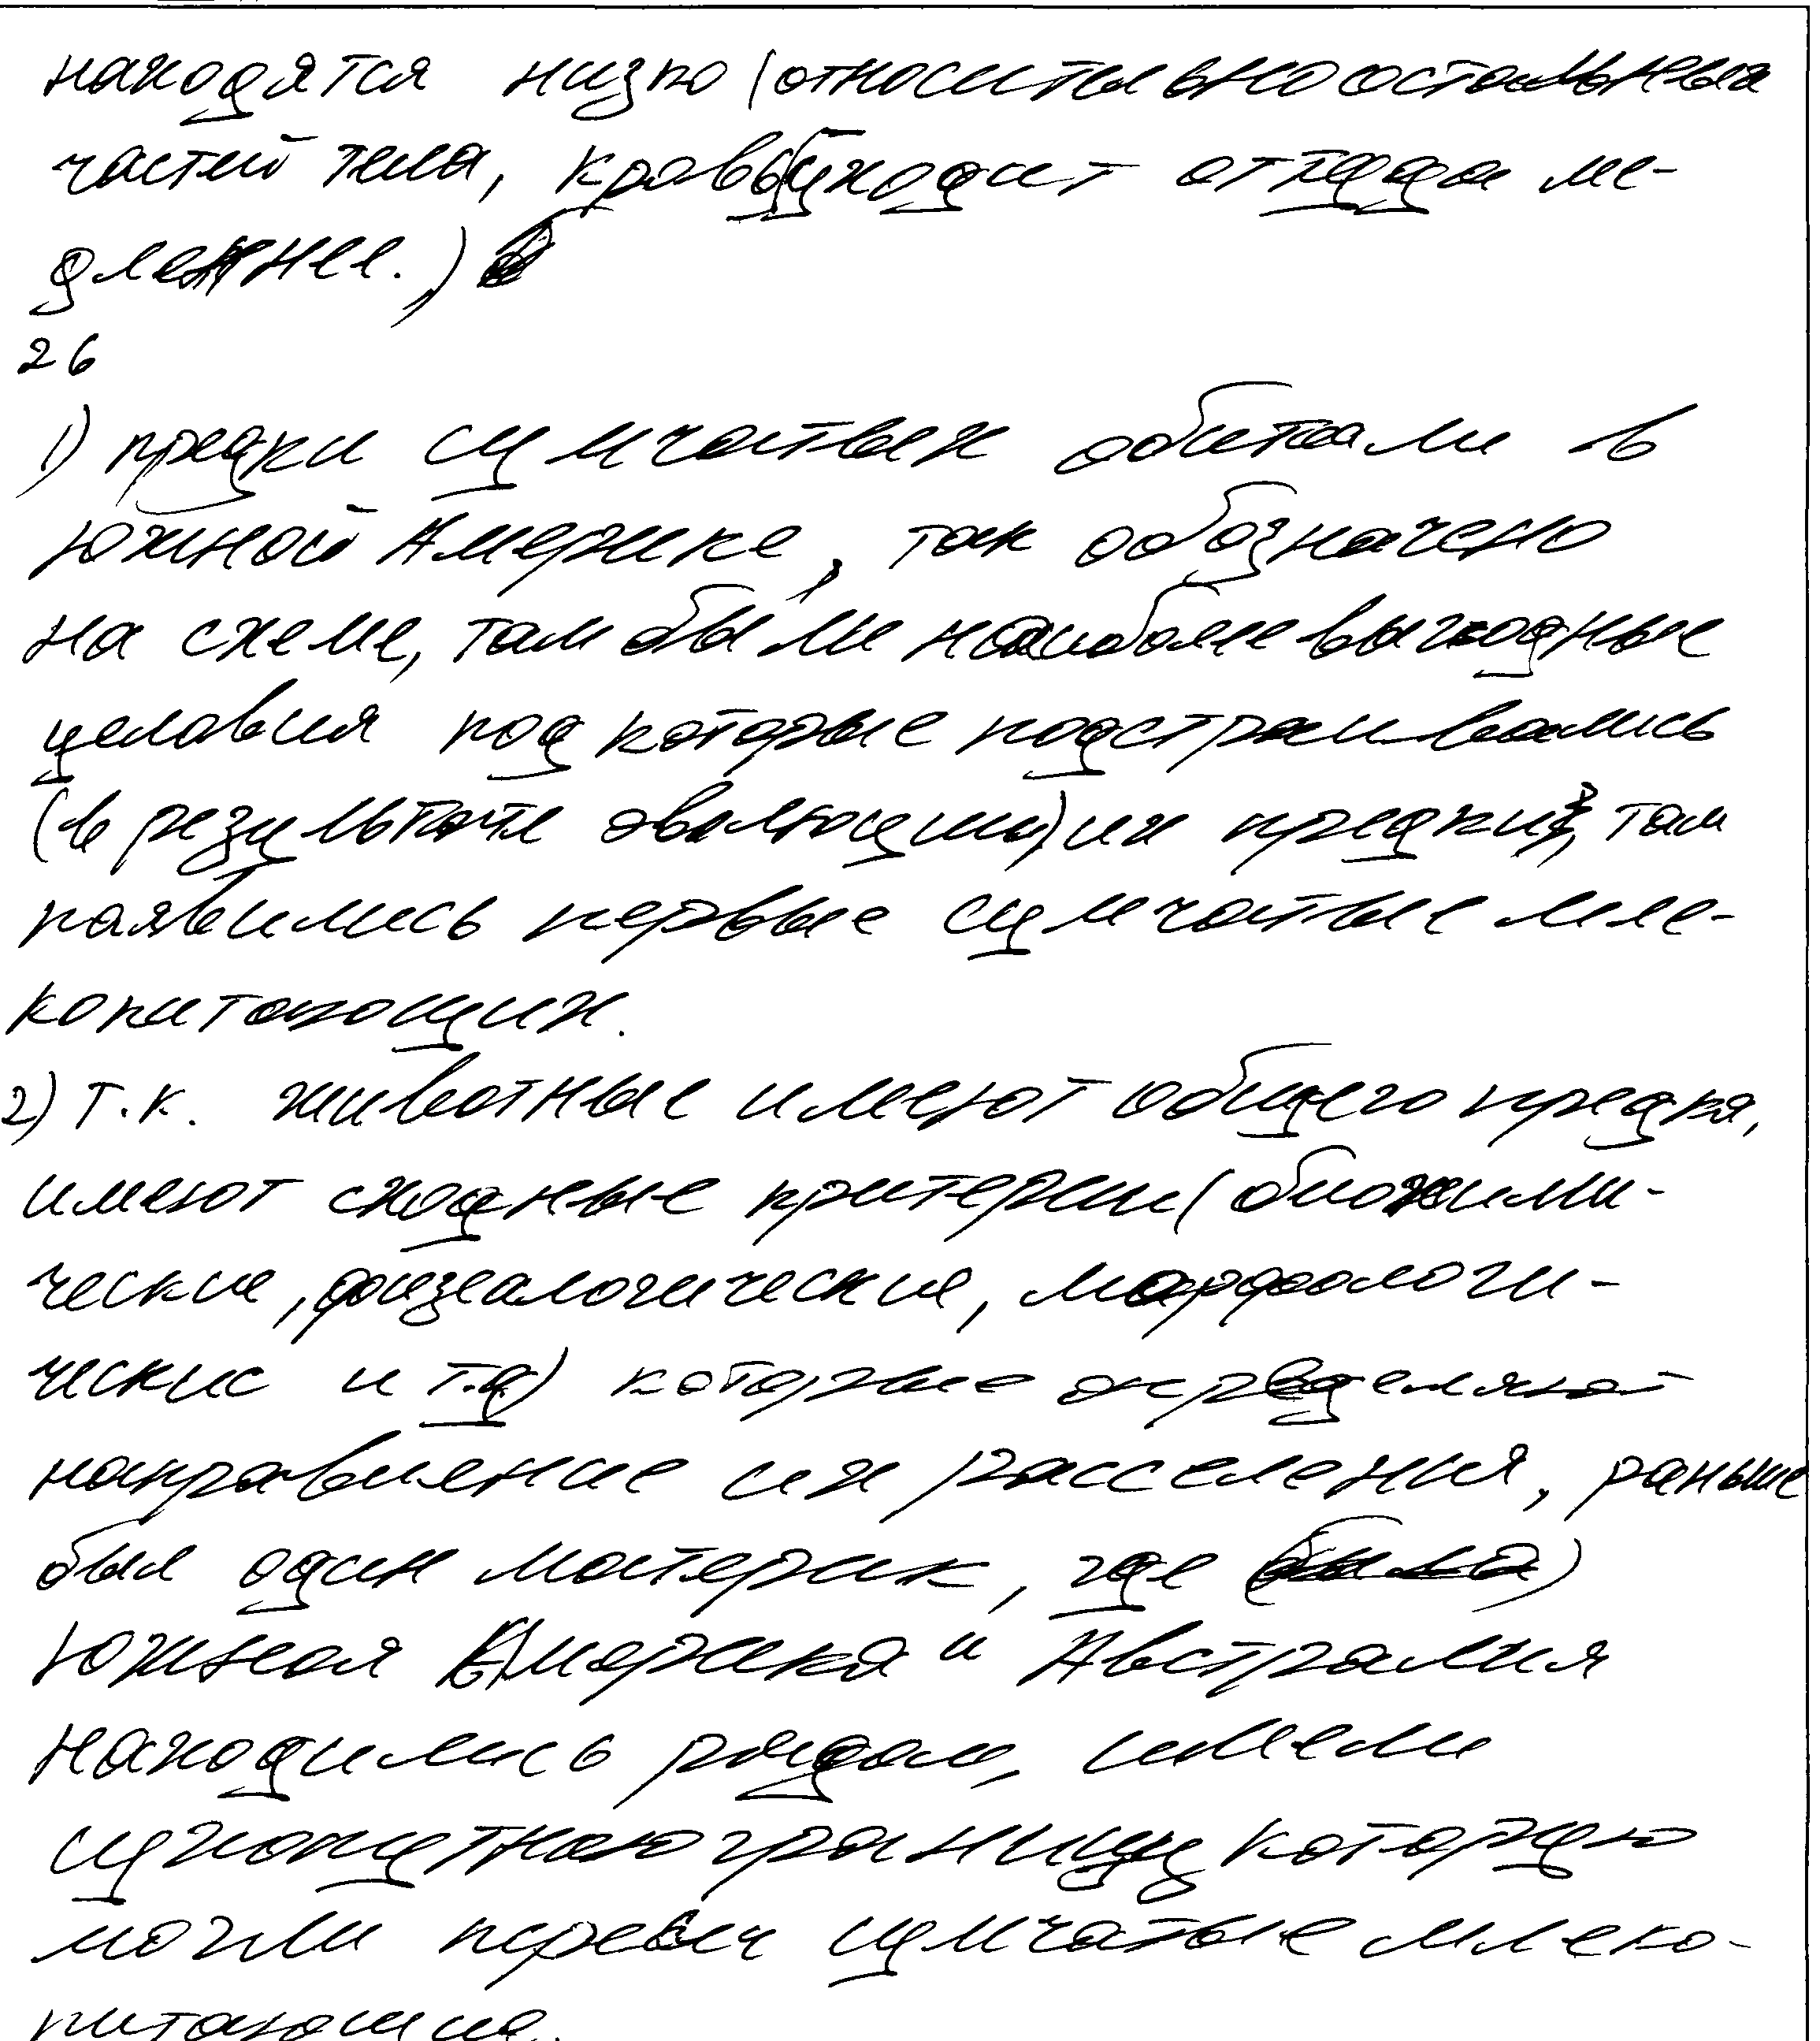 находятся низко (относительно остальных
частей тела, кровь уходит оттуда ме-
дленнее.)
26
1) предки сумчатых обитали в
южной Америке, так обозначено
на схеме, там были наиболее выгодные
условия под которые подстраивались
(в результате эволюции) их предки, там
появились первые сумчатые мле-
копитающих.
2) т.к. животные имеют общего предка,
имеют сходные критерии (биохими-
ческие, физеологические, морфологи-
ческие и т.д) которые определяют
направление их расселения, раньше
был один материк, где
Южная Америка и Австралия
находились рядом, имели
сухопутную границу которую
могли первые сумчатые млеко-
питающие.